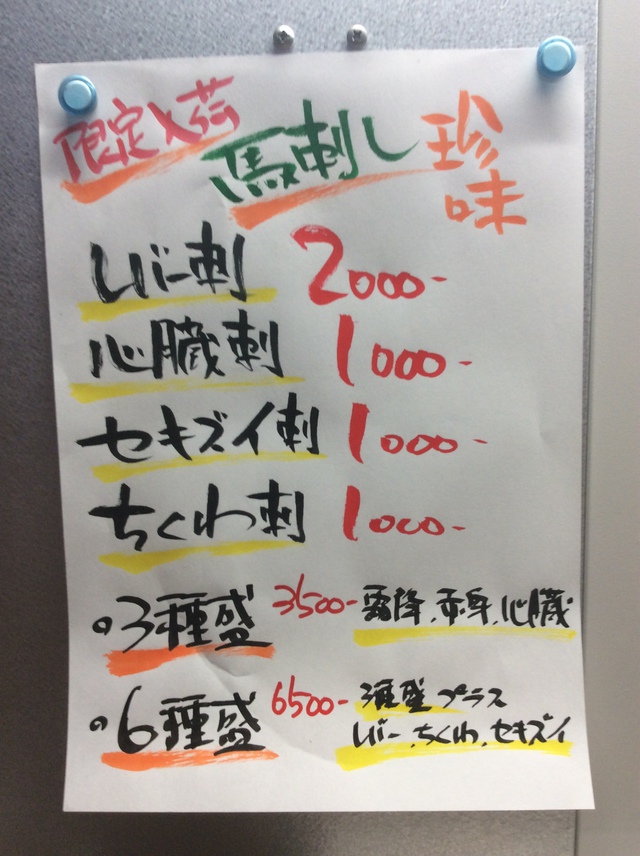 限定入荷 馬刺し 珍味
レバー刺 2000-
心臓刺 1000-
セキズイ刺 1000-
ちくわ刺 1000-
。3種盛 3500- 霜降、赤身、心臓
。6種盛 6500- 3種盛プラス
レバー、ちくわ、セキズイ